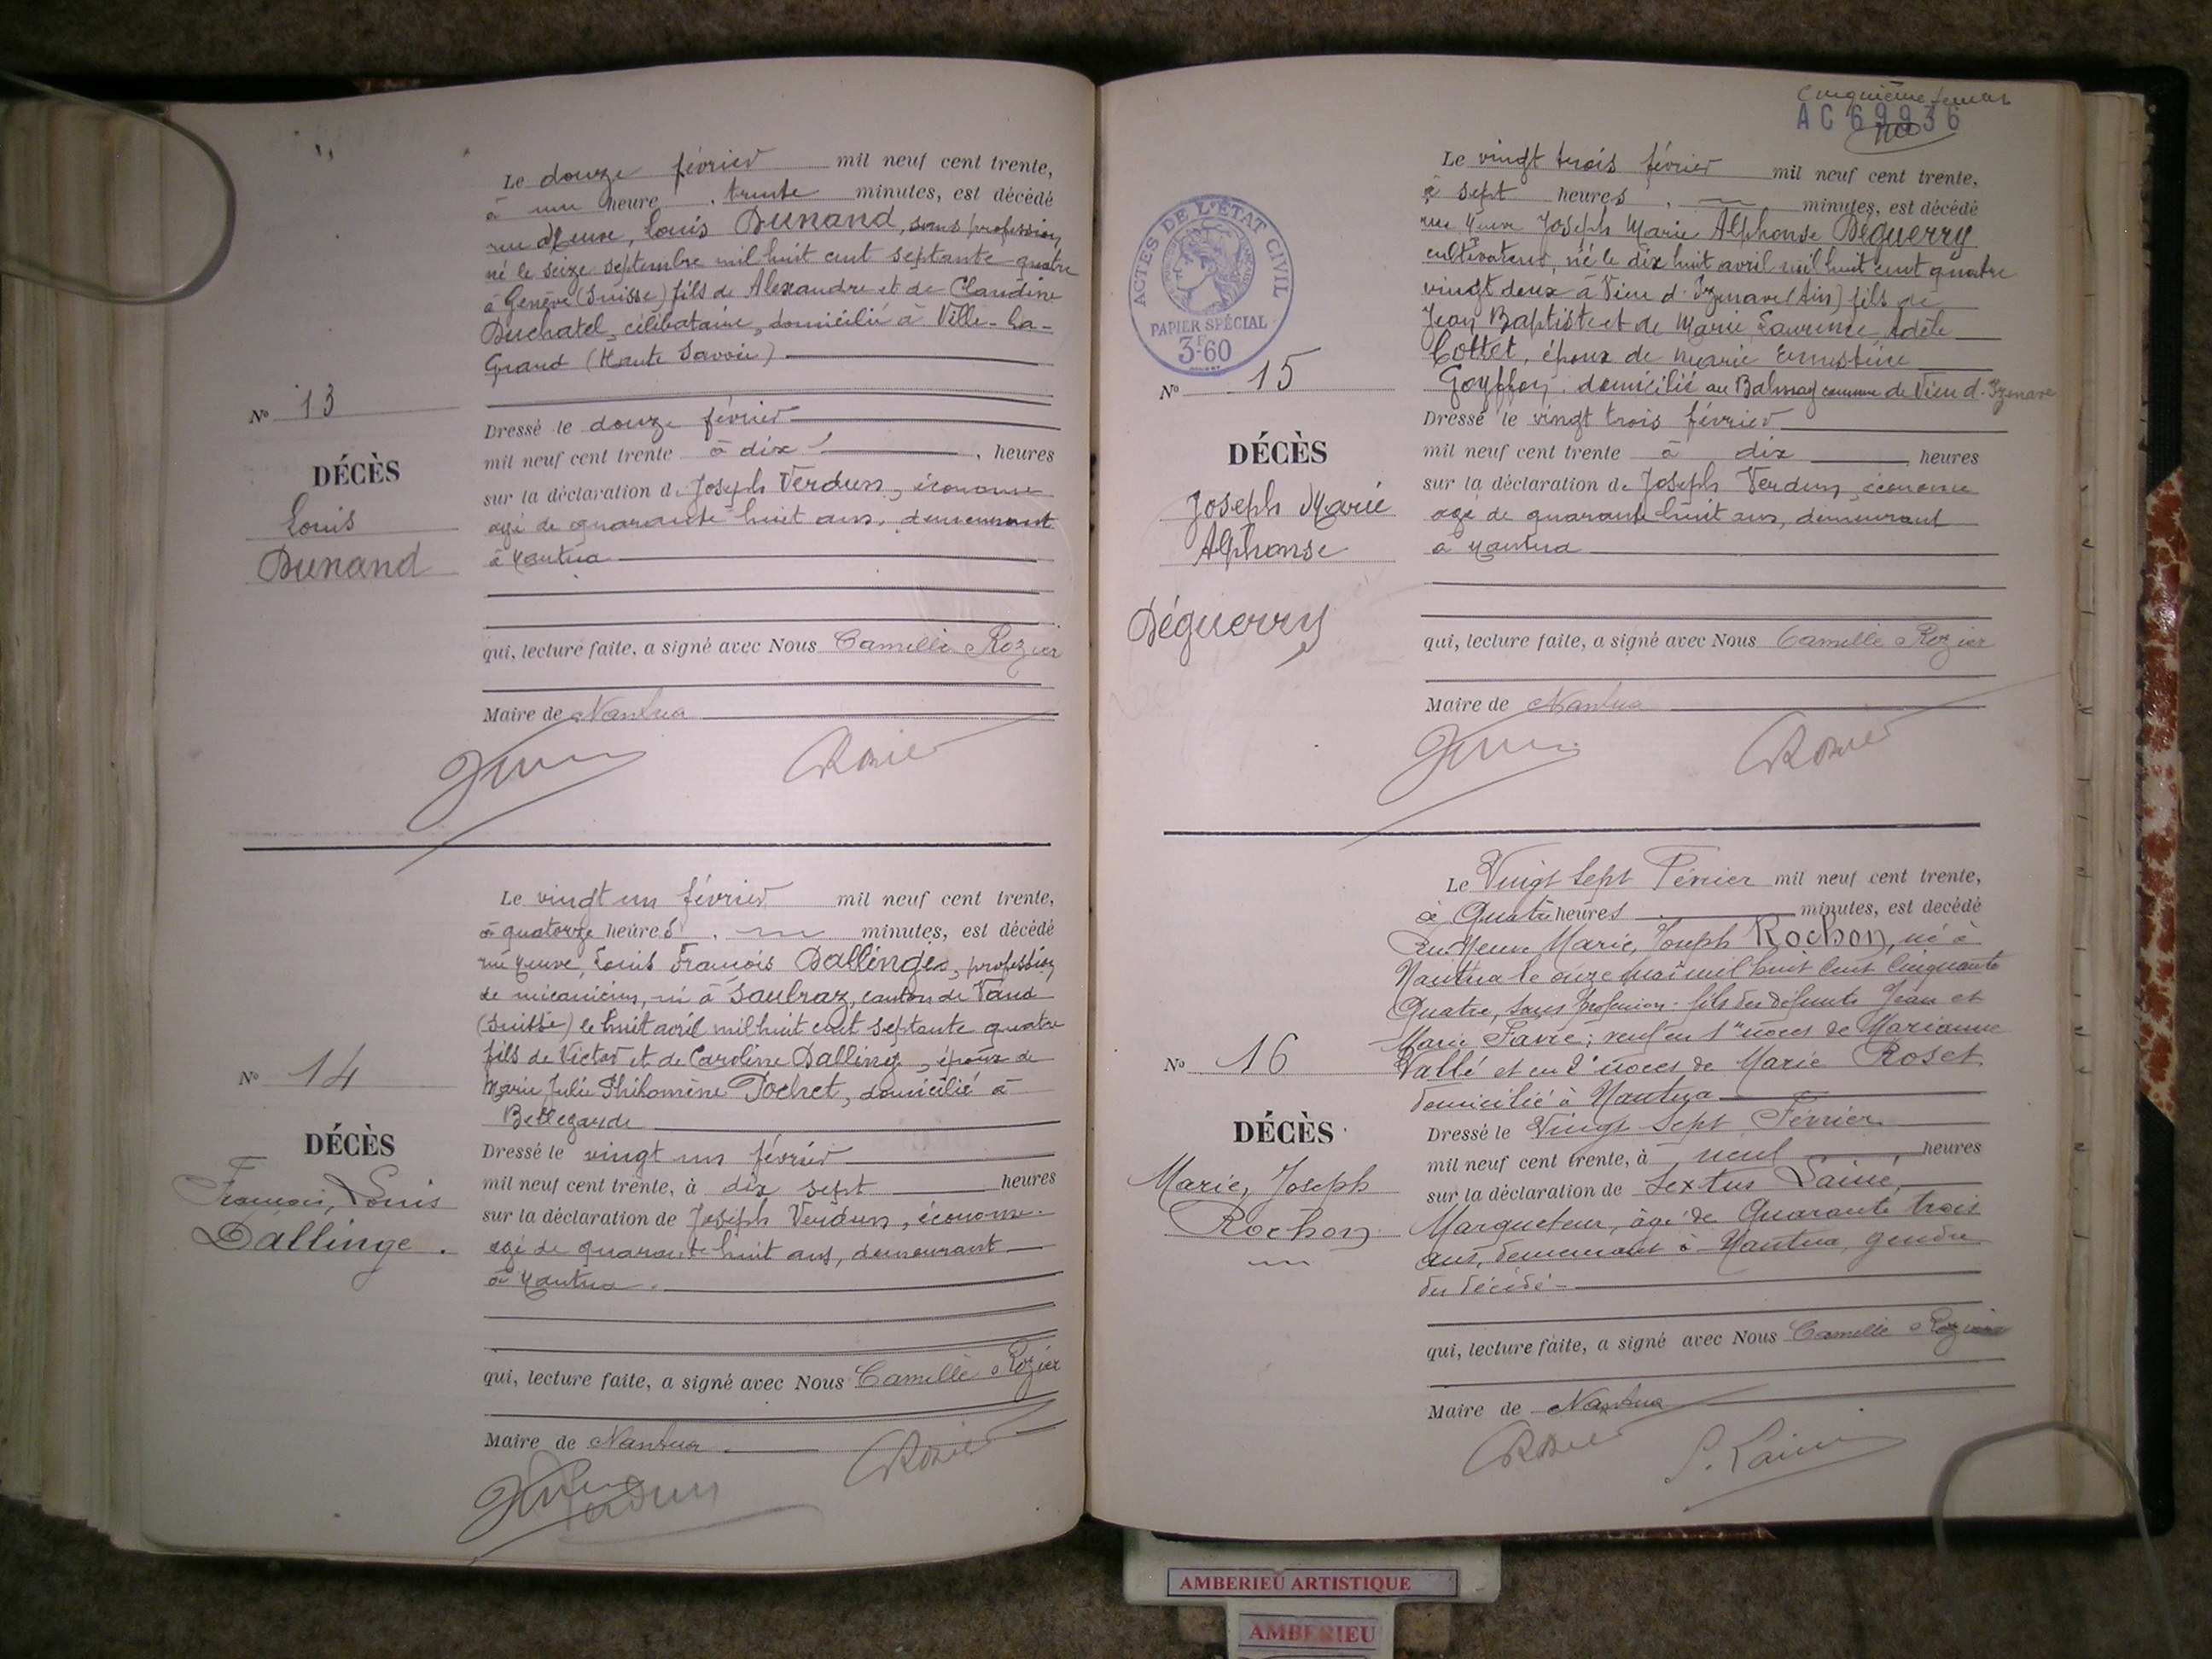 Le douze février mil neuf cent trente,
à une heure, trente minutes, est décédé
rue Neuve, Louis Dunand, sans profession
né le seize septembre mil huit cent septante quatre
à Genève (Suisse) fils de Alexandre et de Claudine
Duchatel, célibataire, domicilié à Ville-la-
Grand (Haute Savoie)
N° 13
DÉCÈS
Louis
Dunand
Dressé le douze février
mil neuf cent trente à dix, heures
sur la déclaration de Joseph Verdun, économe
agé de quarante huit ans, demeurant
à Nantua
qui, lecture faite, a signé avec Nous Camille Rozier
Maire de Nantua
Le vingt un février mil neuf cent trente,
à quatorze heures, minutes, est décédé
rue Neuve, Louis François Dallinges, profession
de mécanicien, né à Saubraz, canton de Vaud
(Suisse) le huit avril mil huit cent septante quatre
fils de Victor et de Caroline Dallinge, époux de
Marie Julie Philomène Pochet, domicilié à
Bellegarde
N° 14
DÉCÈS
François, Louis
Dallinge.
Dressé le vingt un février
mil neuf cent trente, à dix sept heures
sur la déclaration de Joseph Verdun, économe
agé de quarante huit ans, demeurant
à Nantua.
qui, lecture faite, a signé avec Nous Camille Rozier
Maire de Nantua
Verdun
Rozier
Cinquième
AC 69936
Le vingt trois février mil neuf cent trente,
à sept heures, minutes, est décédé
rue Neuve Joseph Marie Alphonse Déguerry
cultivateur, né le dix huit avril mil huit cent quatre
vingt deux à Vieu d'Izenave (Ain) fils de
Jean Baptiste et de Marie Laurence Adèle
Cottet, époux de Marie Ernestine
Goyffon, domicilié au Balmay commune de Vieu d'Izenave
ACTES DE L'ÉTAT CIVIL
PAPIER SPÉCIAL
3F60
N° 15
DÉCÈS
Joseph Marie
Alphonse
Déguerry
Dressé le vingt trois février
mil neuf cent trente à dix, heures
sur la déclaration de Joseph Verdun, économe
agé de quarante huit ans, demeurant
à Nantua
qui, lecture faite, a signé avec Nous Camille Rozier
Maire de Nantua
Rozier
Le Vingt Sept Février mil neuf cent trente,
à Quatre heures, minutes, est décédé
Rue Neuve Marie, Joseph Rochon, né à
Nantua le onze Mai mil huit cent cinquante
Quatre, sans profession. fils des défunts Jean et
Marie Favre; veuf en 1res noces de Marianne
Vallé et en 2e noces de Marie Roset
domicilié à Nantua
N° 16
DÉCÈS
Marie, Joseph
Rochon
Dressé le Vingt Sept Février
mil neuf cent trente, à neuf, heures
sur la déclaration de Sextus Lainé,
Marqueteur, âgé de Quarante trois
ans, demeurant à Nantua, gendre
du décédé
qui, lecture faite, a signé avec Nous Camille Rozier
Maire de Nantua
Rozier
S. Lainé
AMBERIEU ARTISTIQUE
AMBERIEU